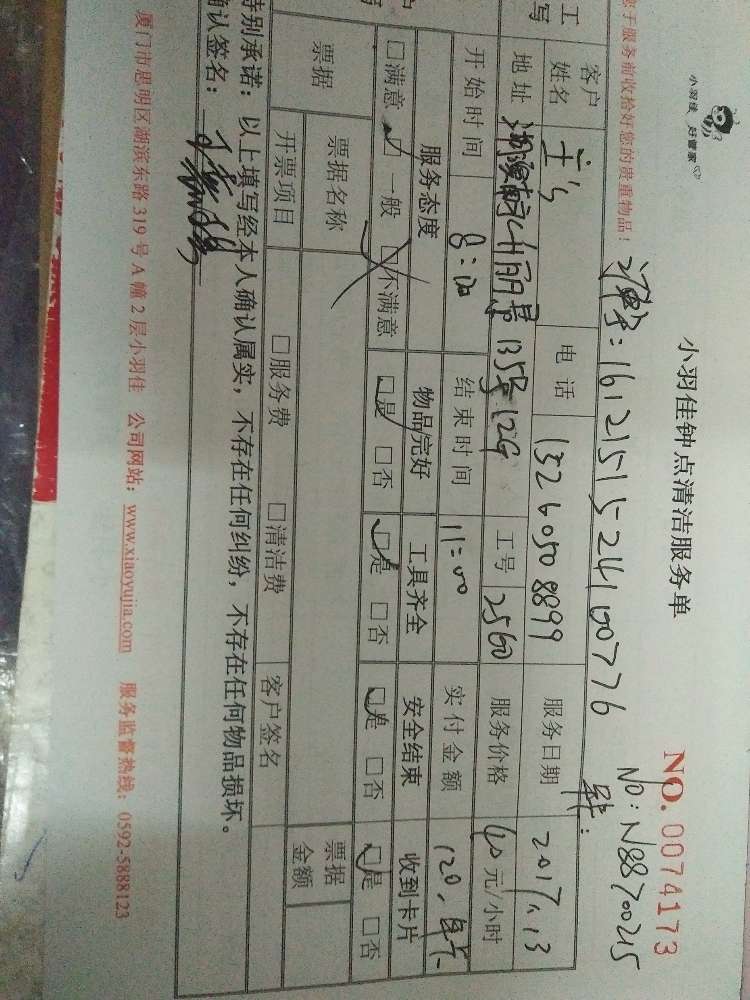 小羽佳 好管家
小羽佳钟点清洁服务单
NO. 0074173
您于服务前收拾好您的贵重物品！
: 161215152410776
NO: N88700215
客户姓名 电话 13260508899 服务日期 2017.1.13
地址 丽景135号12G 工号 2560 服务价格 40元/小时
开始时间 8:00 结束时间 11:00 实付金额 120,
服务态度 物品完好 工具齐全 安全结束 收到卡片
□满意 □一般 □不满意 □是 □否 □是 □否 □是 □否 □是 □否
票据 票据名称 票据金额
开票项目 □服务费 □清洁费 客户签名
特别承诺：以上填写经本人确认属实，不存在任何纠纷，不存在任何物品损坏。
确认签名：
厦门市思明区湖滨东路319号A幢2层小羽佳 公司网站：www.xiaoyujia.com 服务监督热线：0592-5888123